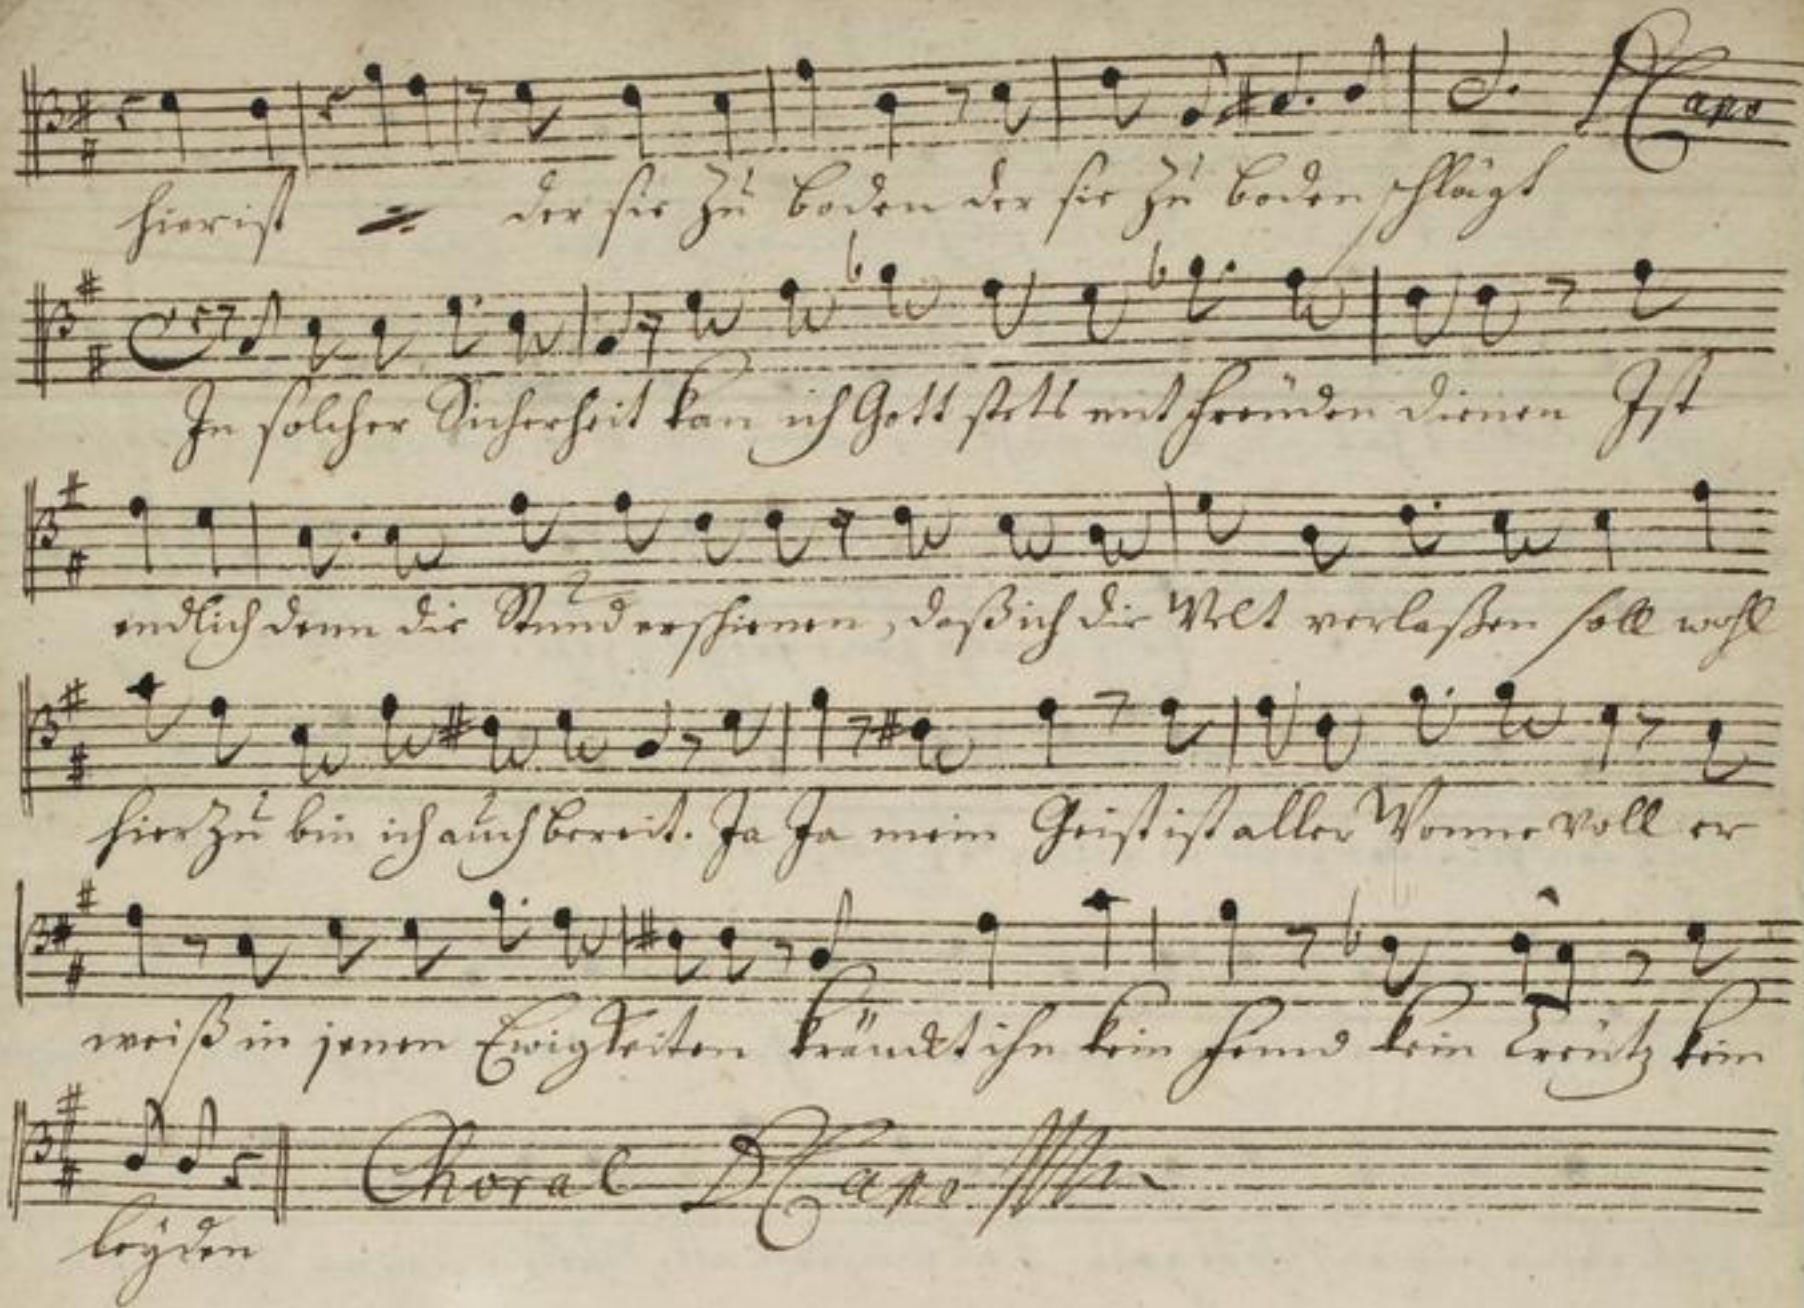 D Capo
hier ist der sie zu boden der sie zu boden schlägt
In solcher Sicherheit kan ich Gott stets mit freuden dienen Ist
endlich denn die Stund erschienen, daß ich die Welt verlaßen soll wohl
hierzu bin ich auch bereit. Ja Ja mein Geist ist aller Wonne voll er
weiß in jenen Ewigkeiten kränckt ihn kein feind kein Creütz kein
leyden
Choral D Capo